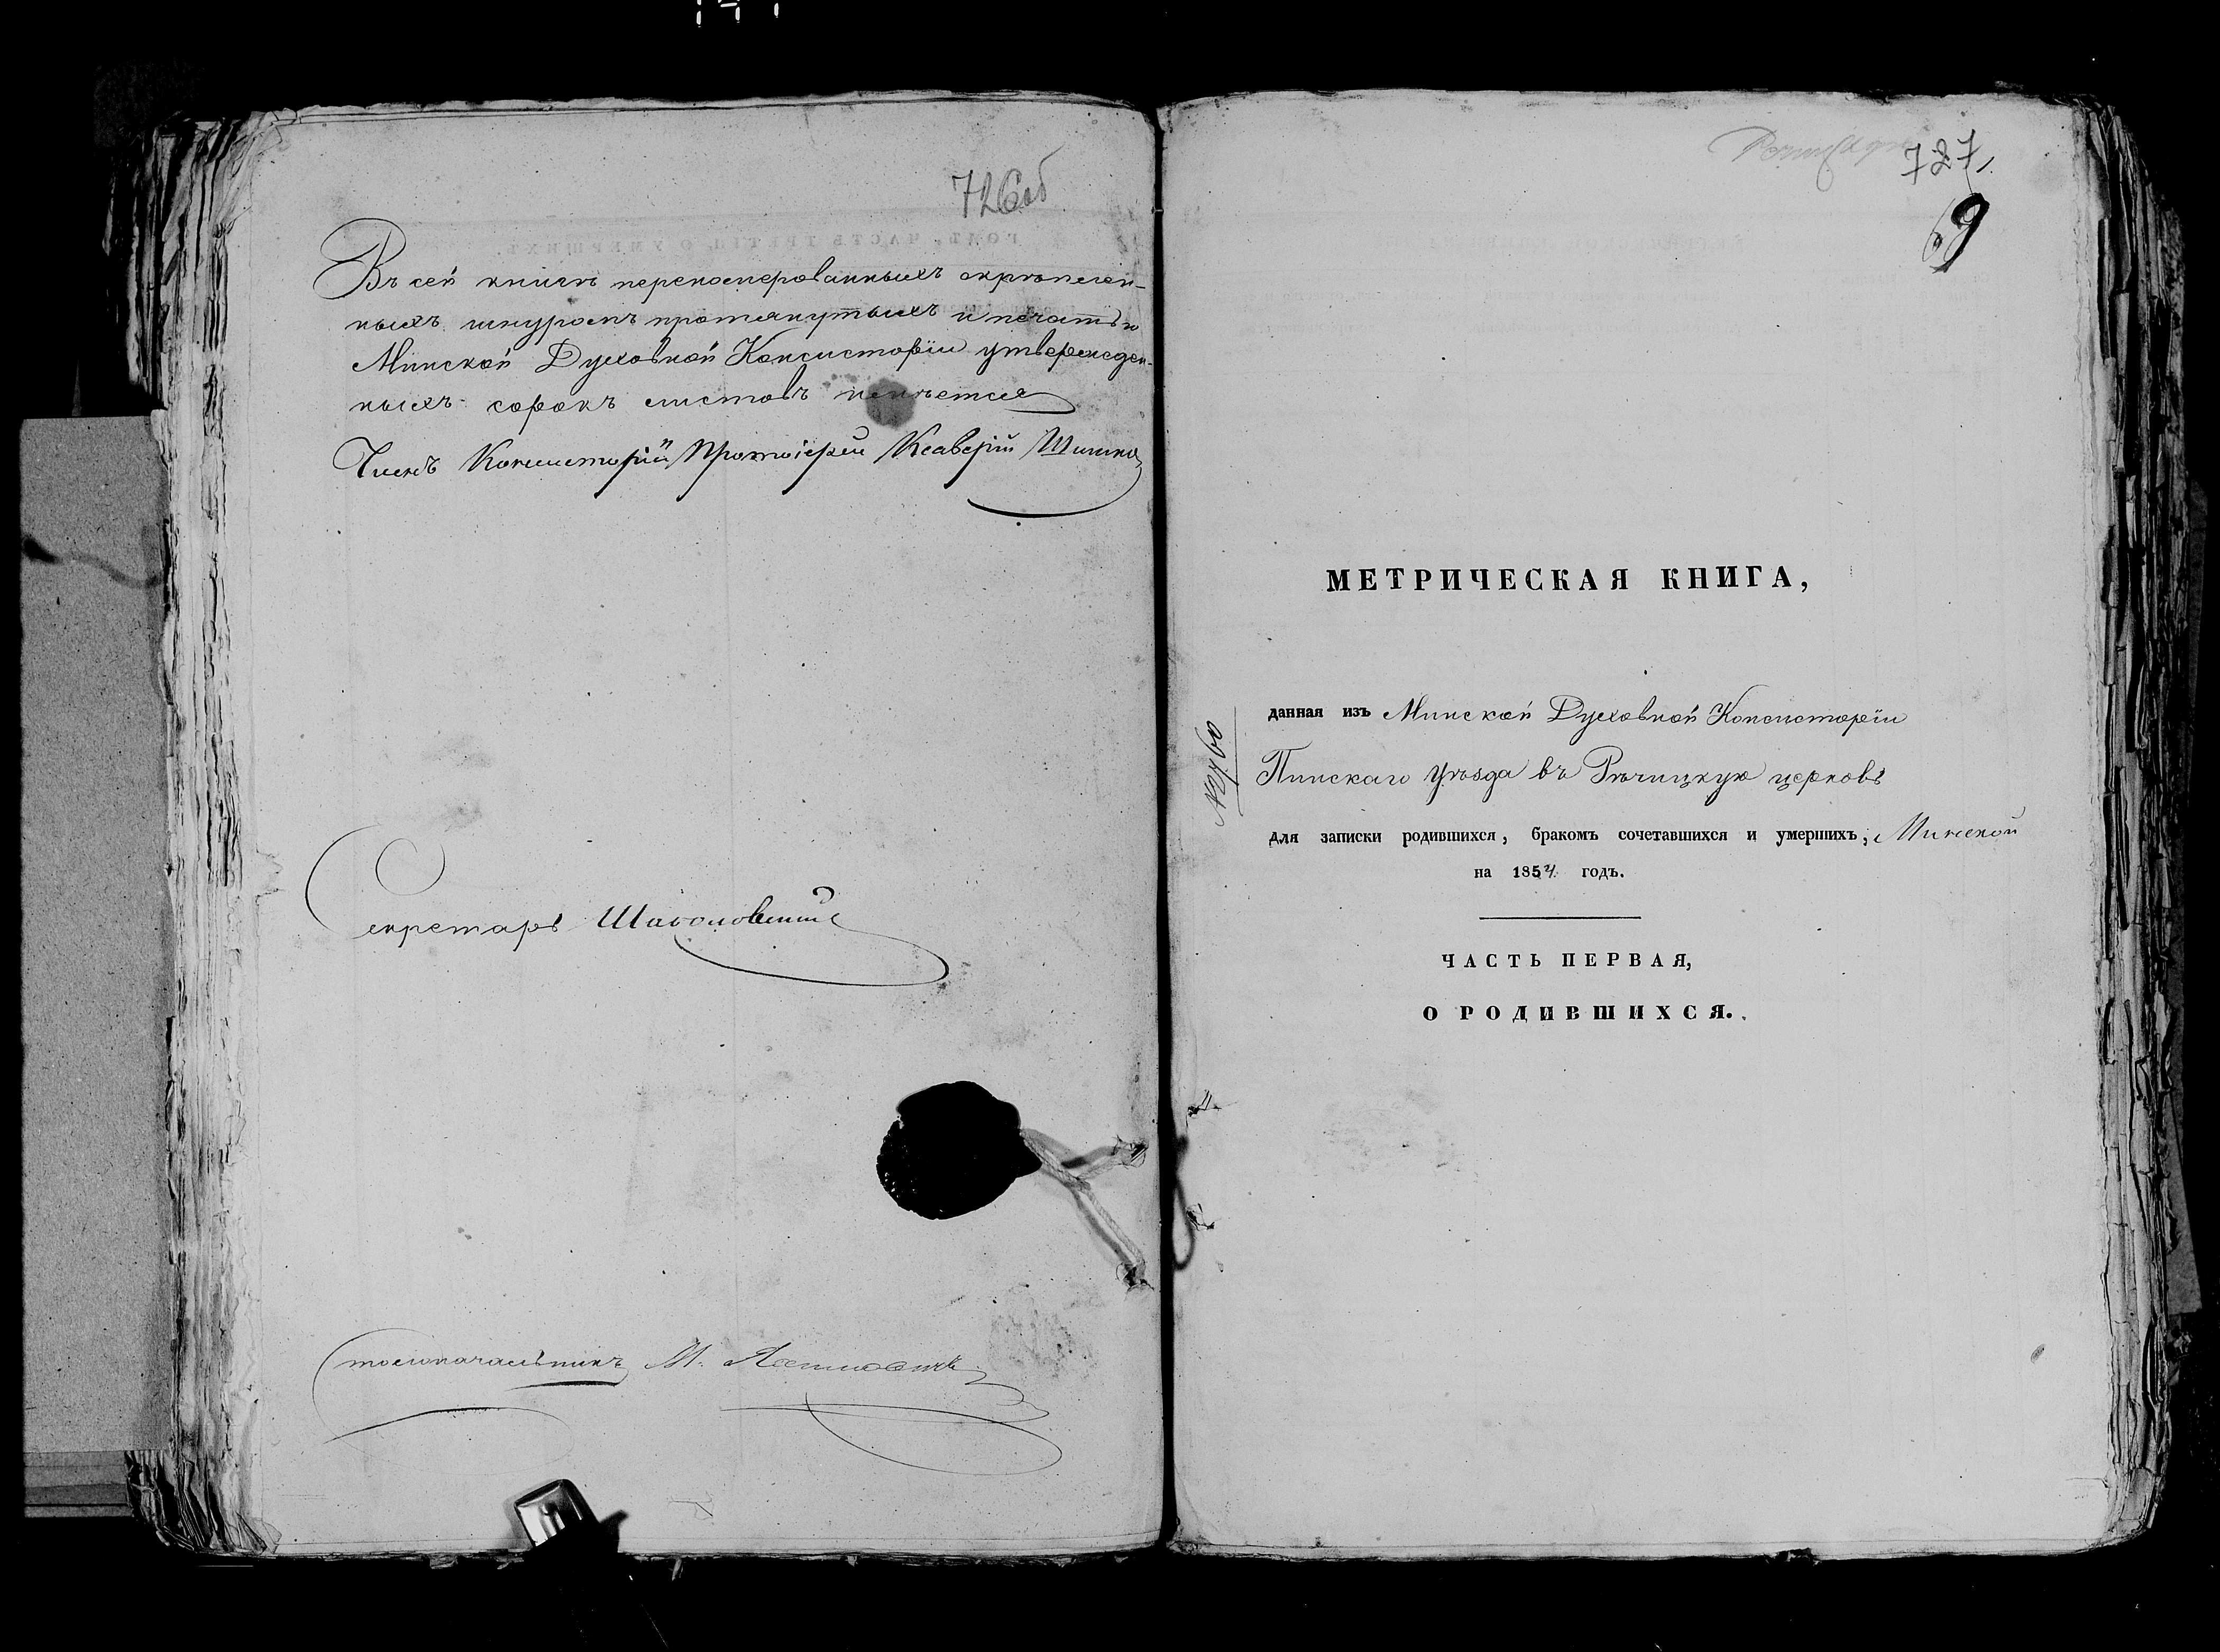 726об
Въ сей книгѣ переномерованныхъ скрѣплен-
ныхъ шнуромъ протянутыхъ и печатью
Минской Духовной Консисторіи утвержден-
ныхъ сорокъ листовъ имѣется
Членъ Консисторіи Протоіерей Ксаверій
Секретарь
Столоначальникъ М.
727
69
МЕТРИЧЕСКАЯ КНИГА,
данная изъ Минской Духовной Консисторіи
Пинскаго Уѣзда въ Рѣчицкую церковь
для записки родившихся, бракомъ сочетавшихся и умершихъ, Минской
на 1854 годъ.
ЧАСТЬ ПЕРВАЯ,
О РОДИВШИХСЯ.